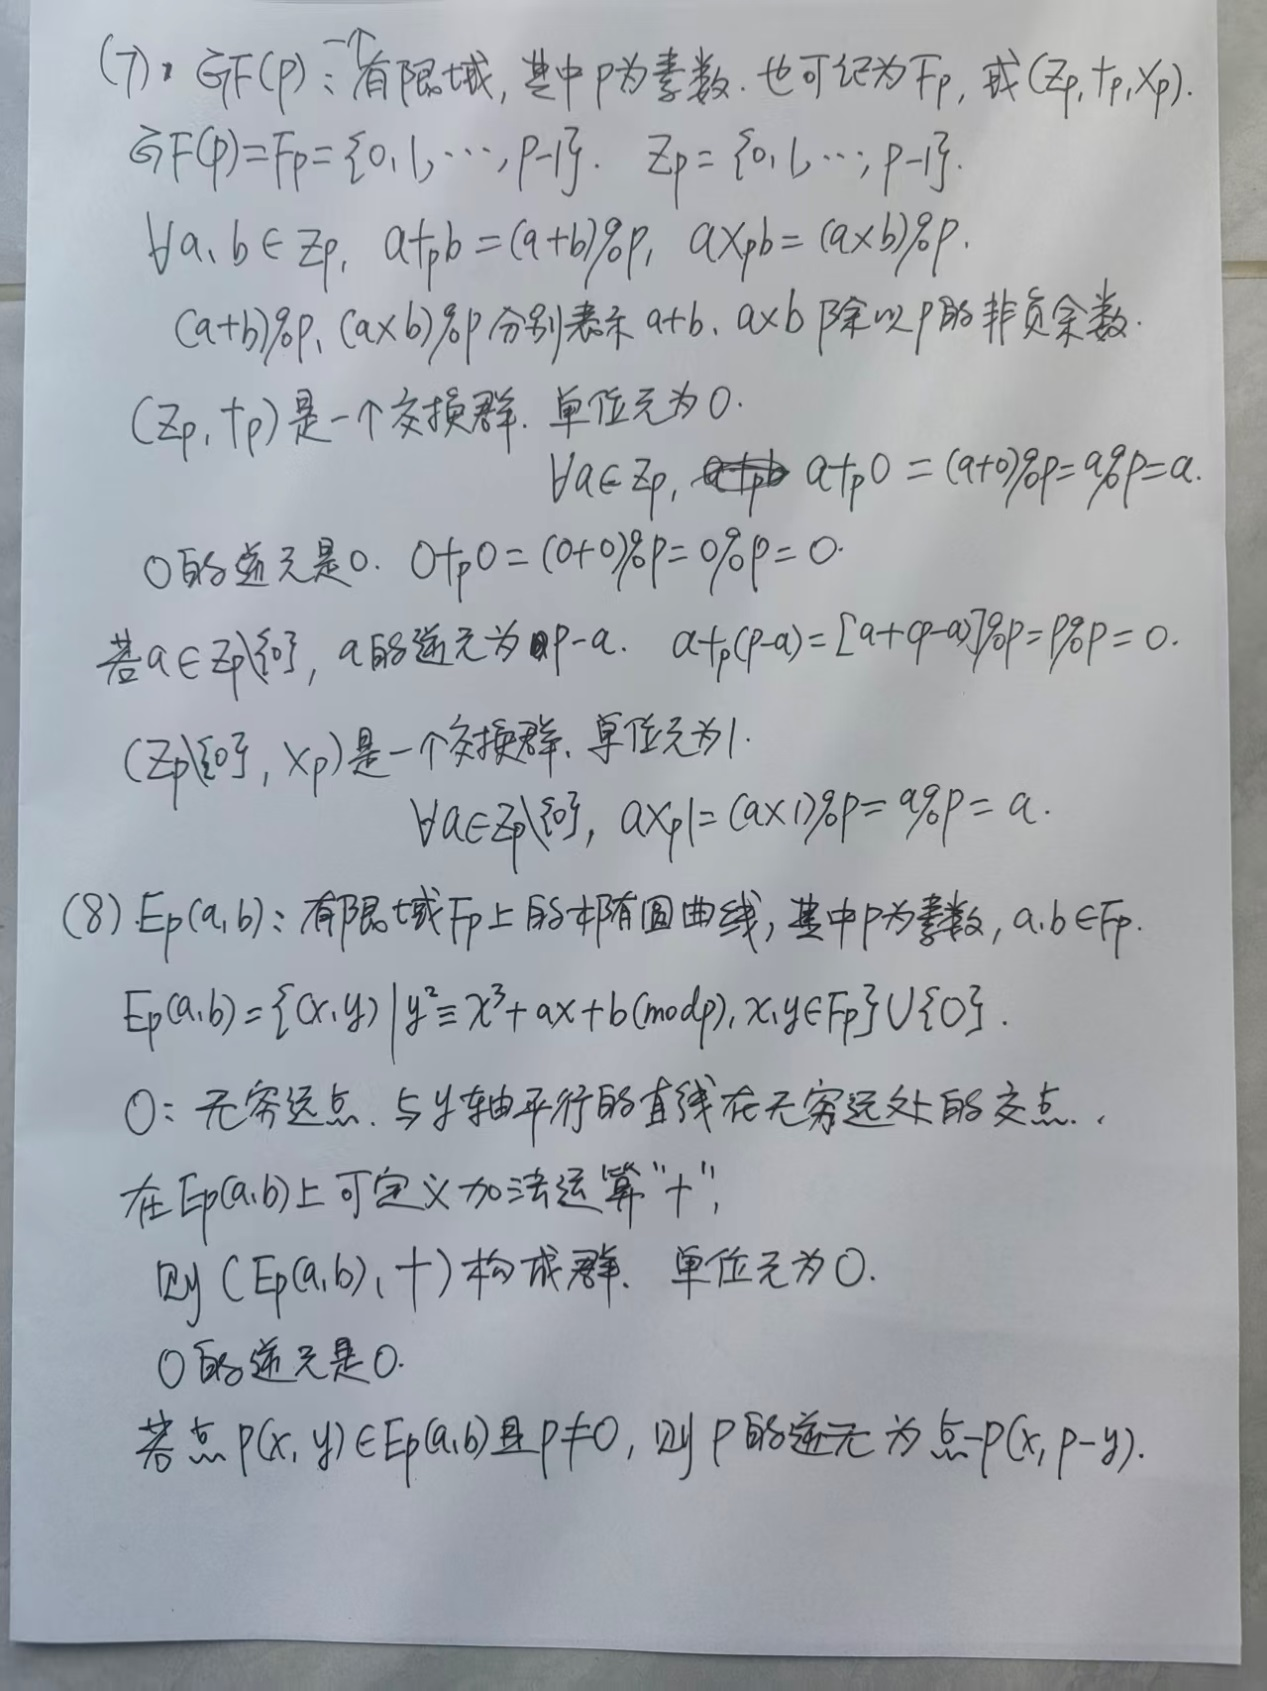 (7). GF(p): 一个有限域, 其中p为素数. 也可记为Fp, 或(Zp, +p, ×p).
GF(p)=Fp={0, 1, ⋯, p-1}. Zp={0, 1, ⋯, p-1}.
∀a、b∈Zp, a+pb=(a+b)%p, a×pb=(a×b)%p.
(a+b)%p、(a×b)%p分别表示a+b、a×b除以p的非负余数.
(Zp, +p)是一个交换群. 单位元为0.
∀a∈Zp, a+p0=(a+0)%p=a%p=a.
0的逆元是0. 0+p0=(0+0)%p=0%p=0.
若a∈Zp\{0}, a的逆元为p-a. a+p(p-a)=[a+(p-a)]%p=p%p=0.
(Zp\{0}, ×p)是一个交换群. 单位元为1.
∀a∈Zp\{0}, a×p1=(a×1)%p=a%p=a.
(8). Ep(a,b): 有限域Fp上的椭圆曲线, 其中p为素数, a、b∈Fp.
Ep(a,b)={(x,y)|y²≡x³+ax+b(modp), x,y∈Fp}∪{O}.
O: 无穷远点. 与y轴平行的直线在无穷远处的交点.
在Ep(a,b)上可定义加法运算"+",
则(Ep(a,b), +)构成群. 单位元为O.
O的逆元是O.
若点P(x, y)∈Ep(a,b)且P≠O, 则P的逆元为点-P(x, p-y).